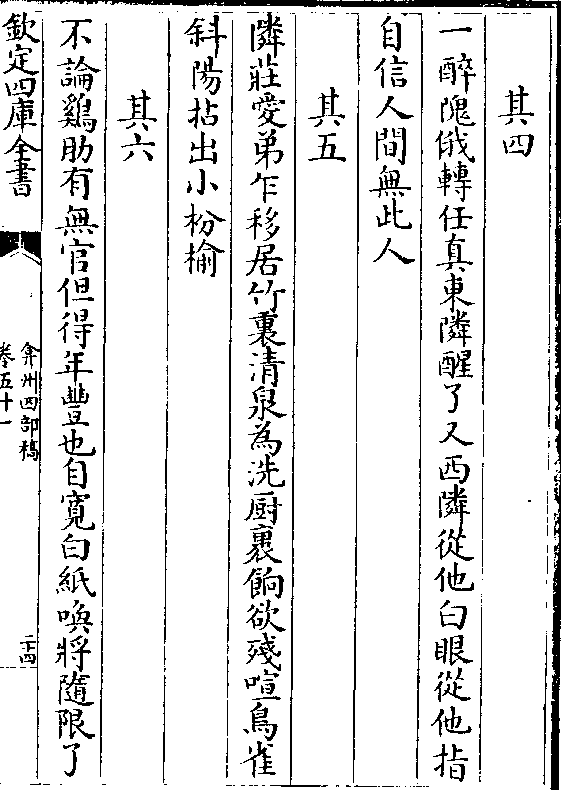 其四
一醉隗俄轉任真東隣醒了又西隣從他白眼從他指
自信人間無此人
其五
隣莊愛弟乍移居竹裏清泉為洗厨裹餉欲殘喧鳥雀
斜陽拈出小枌榆
其六
不論鷄肋有無官但得年豐也自寛白紙喚將隨限了
欽定四庫全書
弇州四部稿
卷五十一
二十四